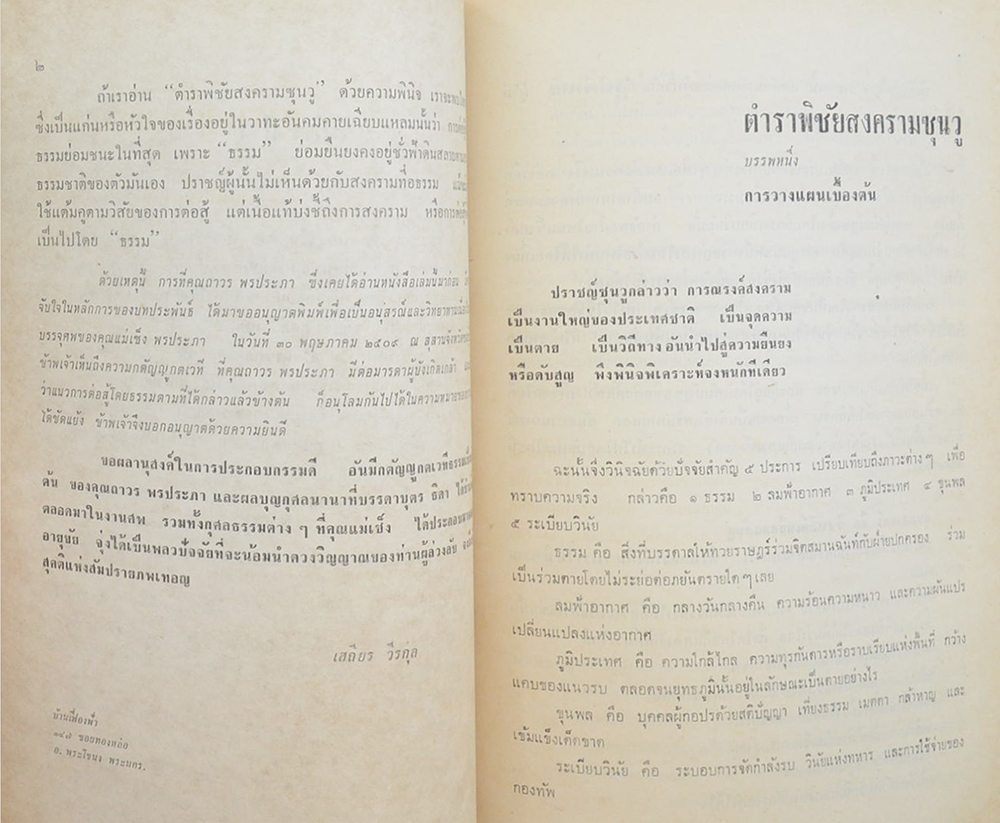 ๒
ถ้าเราอ่าน “ตำราพิชัยสงครามซุนวู” ด้วยความพินิจ
ซึ่งเป็นแก่นหรือหัวใจของเรื่องอยู่ในวาทะอันคมคายเฉียบแหลมนั้นว่า
ธรรมย่อมชนะในที่สุด เพราะ “ธรรม” ย่อมยืนยงคงอยู่ชั่วฟ้าดินสลาย
ธรรมชาติของตัวมันเอง ปราชญ์ผู้นั้นไม่เห็นด้วยกับสงครามที่อธรรม
ใช้แต้มคูตามวิสัยของการต่อสู้ แต่เนื้อแท้บ่งชี้ถึงการสงคราม หรือการต่อสู้
เป็นไปโดย “ธรรม”
ด้วยเหตุนี้ การที่คุณถาวร พรประภา ซึ่งเคยได้อ่านหนังสือเล่มนี้มาก่อน
จับใจในหลักการของบทประพันธ์ ได้มาขออนุญาตพิมพ์เพื่อเป็นอนุสรณ์และวิทยาทาน
บรรจุศพของคุณแม่เช็ง พรประภา ในวันที่ ๓๐ พฤษภาคม ๒๕๐๙ ณ สุสานจังหวัด
ข้าพเจ้าเห็นถึงความกตัญญูกตเวที ที่คุณถาวร พรประภา มีต่อมารดาผู้บังเกิดเกล้า
ว่าแนวการต่อสู้โดยธรรมตามที่ได้กล่าวแล้วข้างต้น ก็อนุโลมกันไปได้ในความหมายของ
ได้ชัดแย้ง ข้าพเจ้าจึงบอกอนุญาตด้วยความยินดี
ขอผลานุสงต์ในการประกอบกรรมดี อันมีกตัญญูกตเวทีธรรม
ต้น ของคุณถาวร พรประภา และผลบุญกุศลนานาที่บรรดาบุตร ธิดา
ตลอดมาในงานศพ รวมทั้งกุศลธรรมต่าง ๆ ที่คุณแม่เช็ง ได้ประกอบ
อายุขัย จงได้เป็นพลวปัจจัยที่จะน้อมนำดวงวิญญาณของท่านผู้ล่วงลับ
สุดดีแห่งสัมปรายภพเทอญ
เสถียร วีรกุล
บ้านเฟื่องฟ้า
๑๔๗ ซอยทองหล่อ
อ. พระโขนง พระนคร.
ตำราพิชัยสงครามซุนวู
บรรพหนึ่ง
การวางแผนเบื้องต้น
ปราชญ์ซุนวูกล่าวว่า การณรงค์สงคราม
เป็นงานใหญ่ของประเทศชาติ เป็นจุดความ
เป็นตาย เป็นวิถีทาง อันนำไปสู่ความยืนยง
หรือดับสูญ พึงพินิจพิเคราะห์จงหนักทีเดียว
ฉะนั้นจึงวินิจฉัยด้วยปัจจัยสำคัญ ๕ ประการ เปรียบเทียบถึงภาวะต่าง ๆ เพื่อ
ทราบความจริง กล่าวคือ ๑ ธรรม ๒ ลมฟ้าอากาศ ๓ ภูมิประเทศ ๔ ขุนพล
๕ ระเบียบวินัย
ธรรม คือ สิ่งที่บรรดาลให้ทวยราษฎร์ร่วมจิตสมานฉันท์กับฝ่ายปกครอง ร่วม
เป็นร่วมตายโดยไม่ระย่อต่อภยันตรายใด ๆ เลย
ลมฟ้าอากาศ คือ กลางวันกลางคืน ความร้อนความหนาว และความผันแปร
เปลี่ยนแปลงแห่งอากาศ
ภูมิประเทศ คือ ความใกล้ไกล ความทุรกันดารหรือราบเรียบแห่งพื้นที่ กว้าง
แคบของแนวรบ ตลอดจนยุทธภูมินั้นอยู่ในลักษณะเป็นตายอย่างไร
ขุนพล คือ บุคคลผู้กอปรด้วยสติปัญญา เที่ยงธรรม เมตตา กล้าหาญ และ
เข้มแข็งเด็ดขาด
ระเบียบวินัย คือ ระบอบการจัดกำลังรบ วินัยแห่งทหาร และการใช้จ่ายของ
กองทัพ